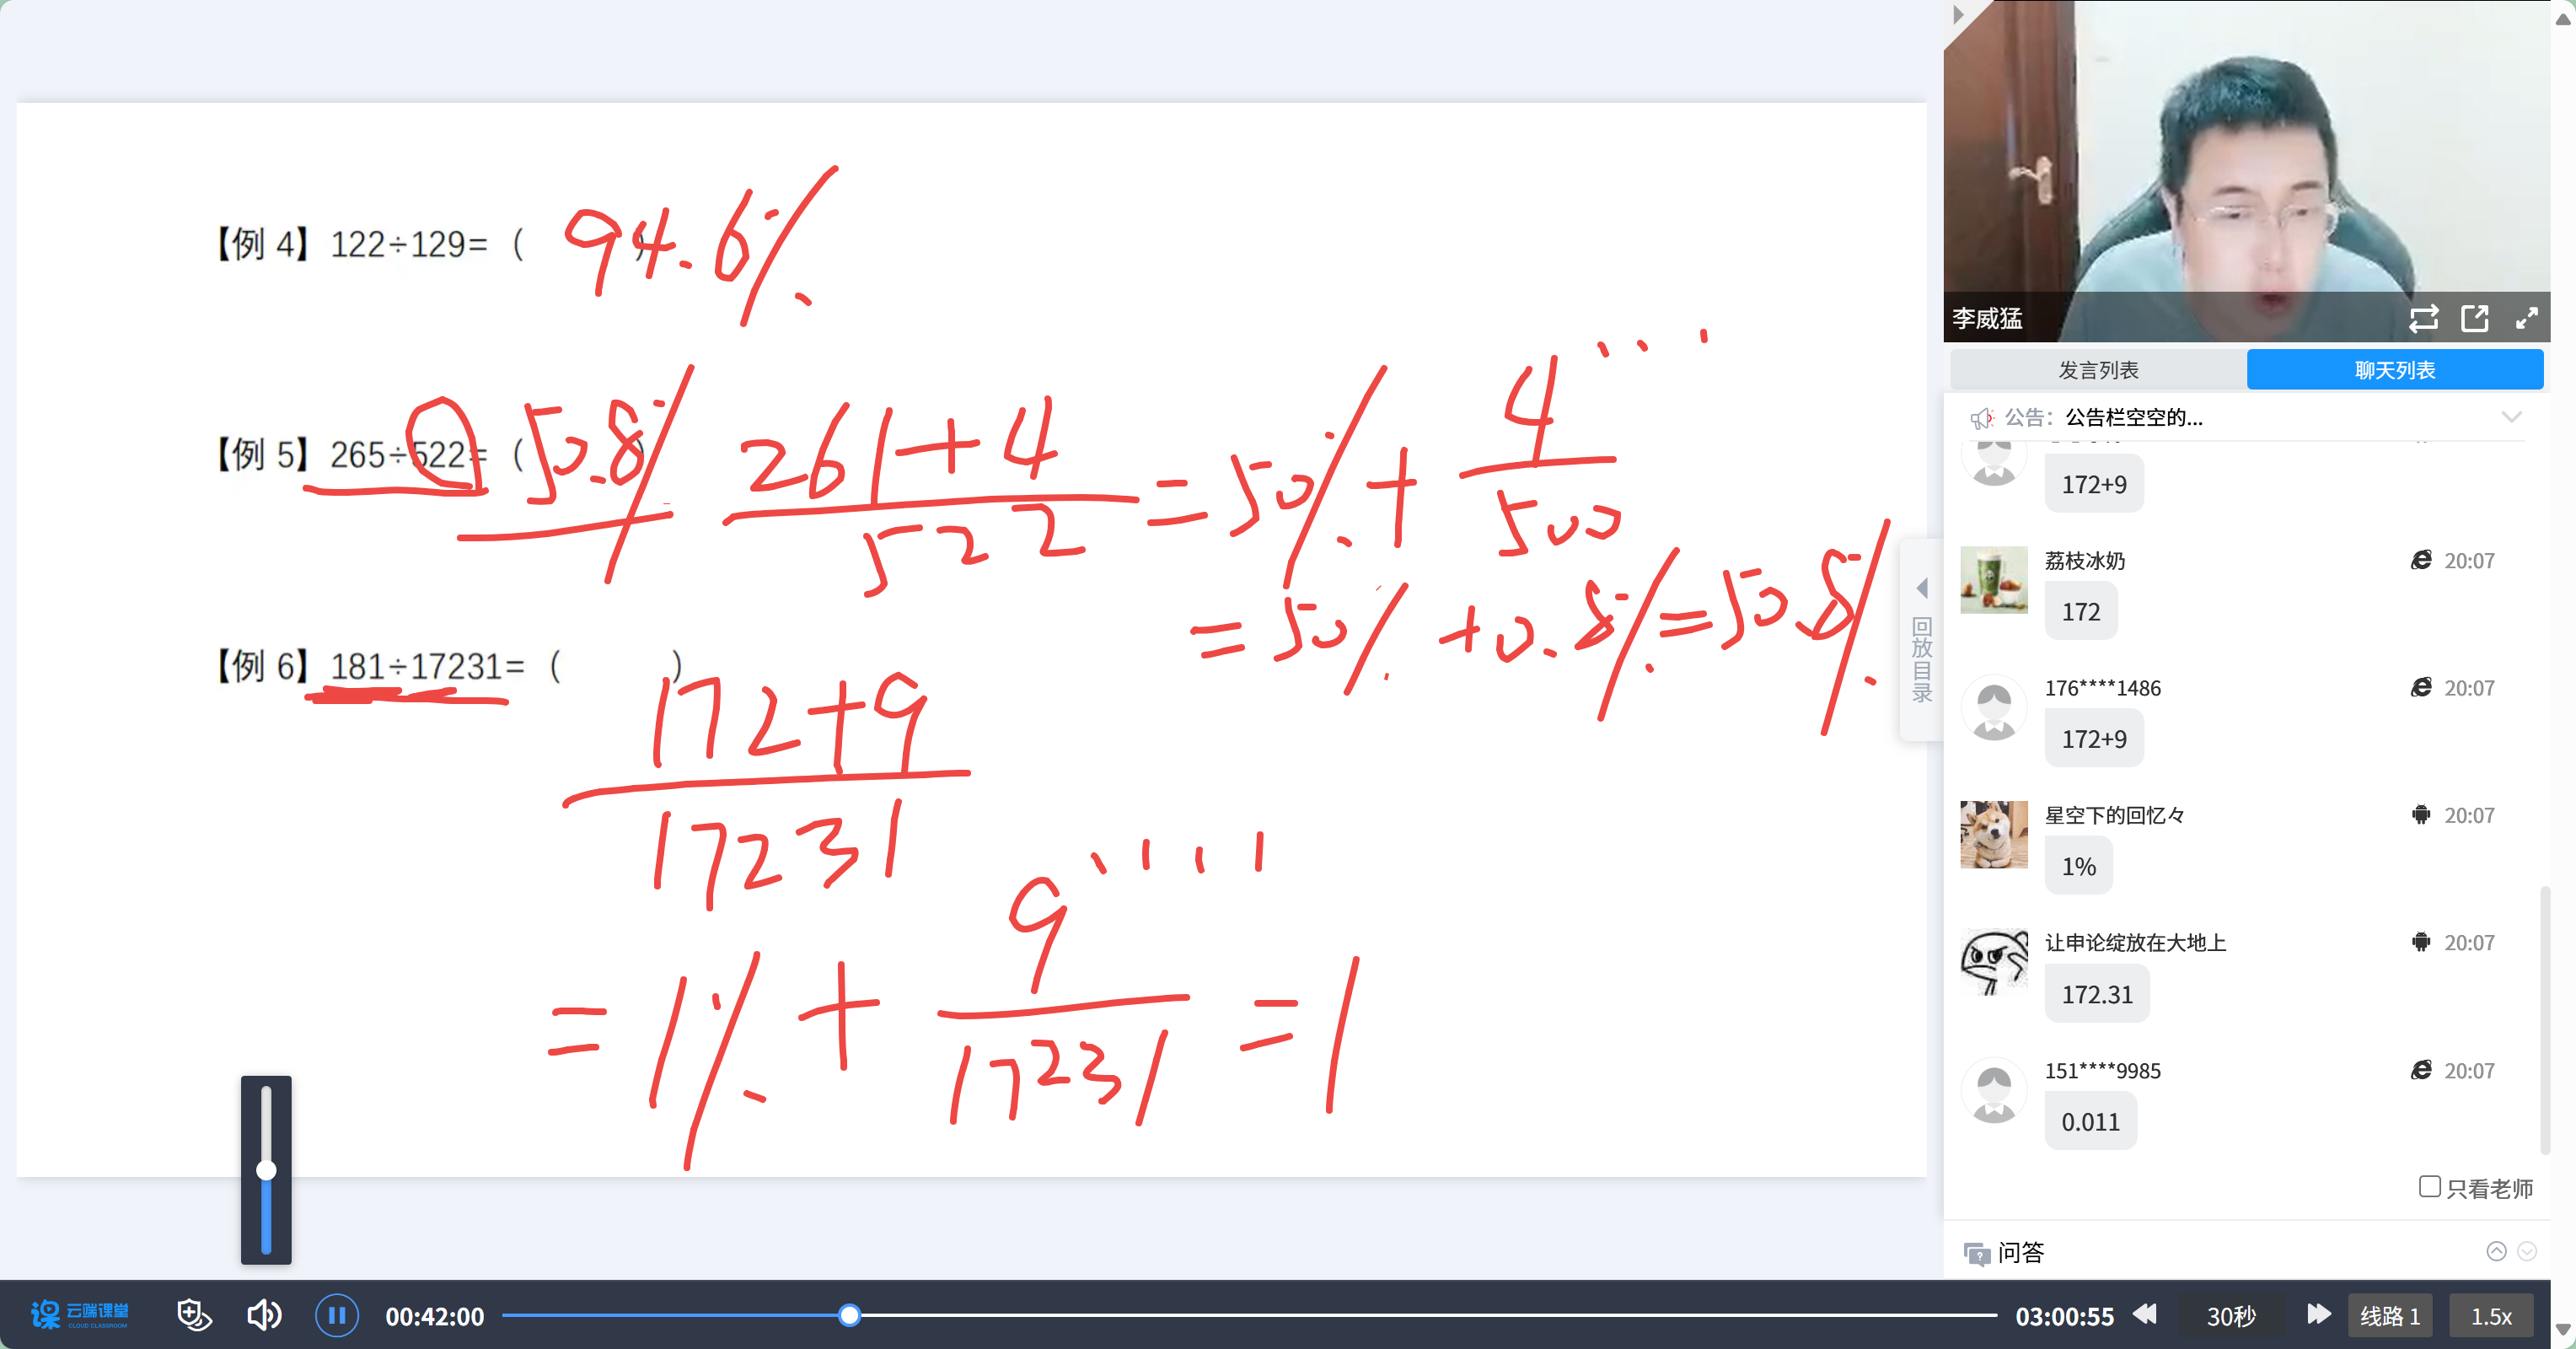 【例 4】122÷129=（ 94.6% ）
【例 5】265÷522=（ 50.8% ）
261+4
522
=50%+
4
500
=50%+0.8%=50.8%
【例 6】181÷17231=（ ）
172+9
17231
=1%+
9
17231
=1
李威猛
发言列表
聊天列表
公告：公告栏空空的...
172+9
荔枝冰奶 20:07
172
176****1486 20:07
172+9
星空下的回忆々 20:07
1%
让申论绽放在大地上 20:07
172.31
151****9985 20:07
0.011
只看老师
问答
回放目录
课 云端课堂
CLOUD CLASSROOM
00:42:00
03:00:55
30秒
线路 1
1.5x